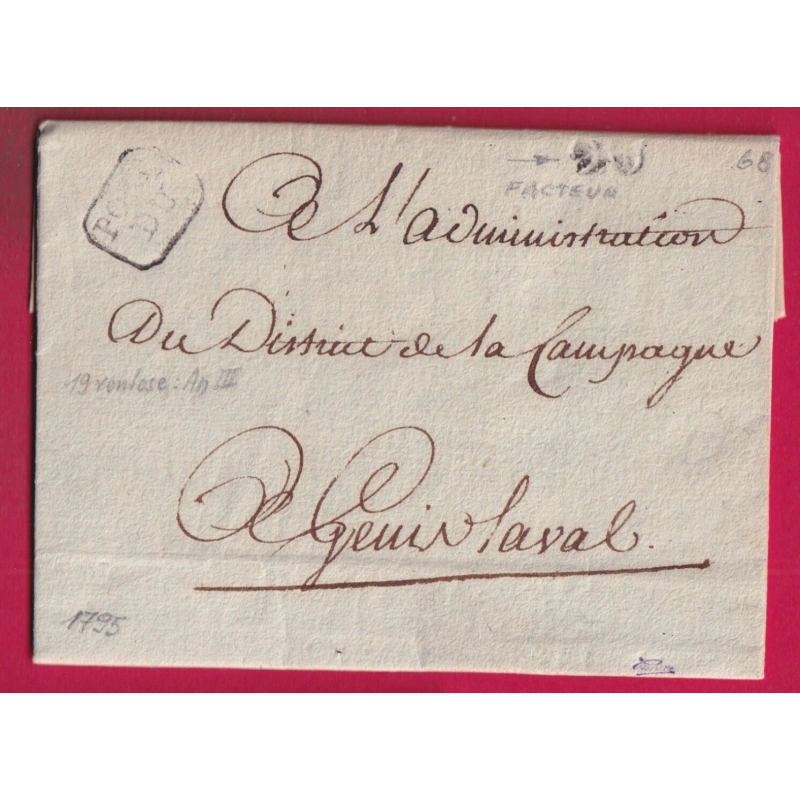 68
FACTEUR
A L'administration
Du District de la Campagne
19 ventose : An III
A Genis laval.
1795